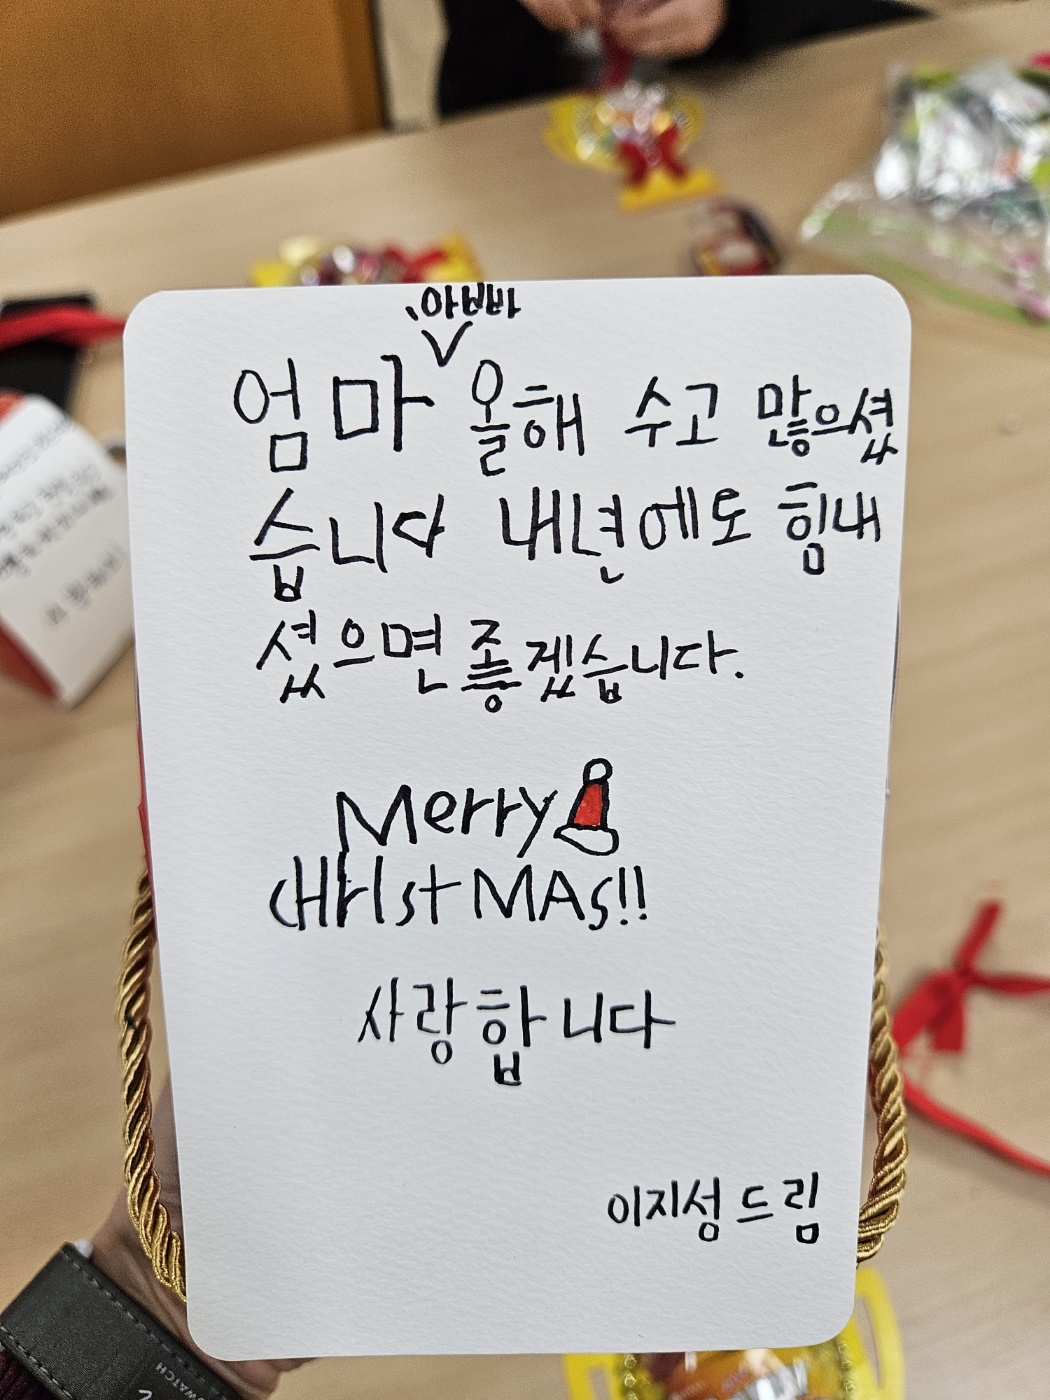 엄마、아빠 올해 수고 많으셨
습니다 내년에도 힘내
셨으면 좋겠습니다.
Merry
cHrIst MAS!!
사랑합니다
이지성 드림
WATCH